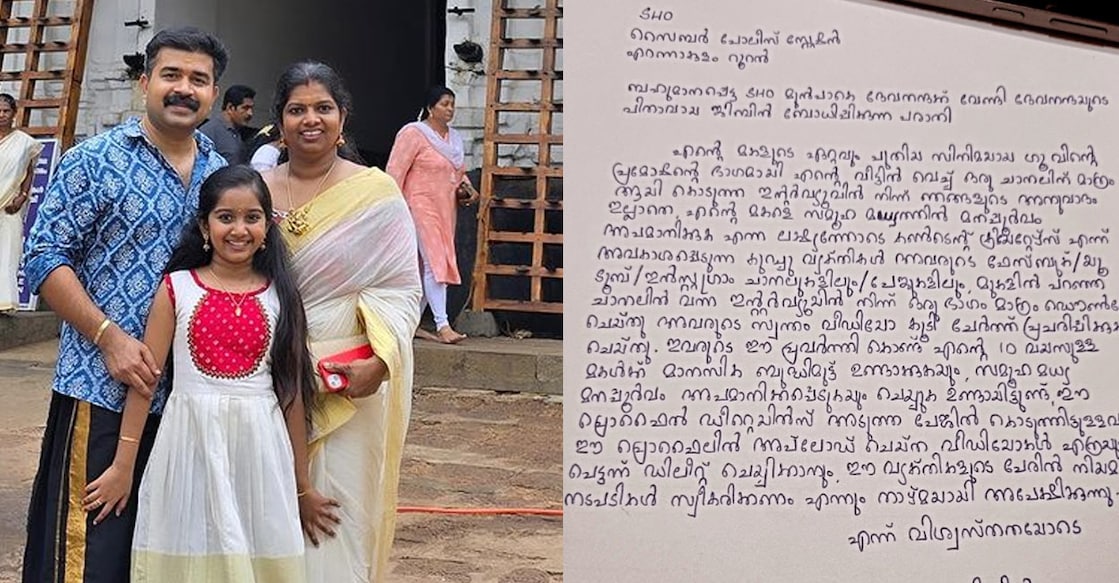 SHO
സൈബർ പോലീസ് സ്റ്റേഷൻ
എറണാകുളം റൂറൽ
ബഹുമാനപ്പെട്ട SHO മുൻപാകെ ദേവനന്ദക്ക് വേണ്ടി ദേവനന്ദയുടെ
പിതാവായ ജിബിൻ ബോധിപ്പിക്കുന്ന പരാതി
എന്റെ മകളുടെ ഏറ്റവും പുതിയ സിനിമയായ ഗു വിന്റെ
പ്രമോഷന്റെ ഭാഗമായി എന്റെ വീട്ടിൽ വെച്ച് ഒരു ചാനലിന് മാത്രം
ആയി കൊടുത്ത ഇന്റർവ്യൂവിൽ നിന്ന് ഞങ്ങളുടെ അനുവാദം
ഇല്ലാതെ, എന്റെ മകളെ സമൂഹ മധ്യത്തിൽ മനഃപൂർവം
അപമാനിക്കുക എന്ന ലക്ഷ്യത്തോടെ കണ്ടെന്റ് ക്രിയേറ്റേഴ്‌സ് എന്ന്
അവകാശപ്പെടുന്ന കുറച്ചു വ്യക്തികൾ അവരുടെ ഫേസ്ബുക്ക്/യൂ
ട്യൂബ്/ഇൻസ്റ്റഗ്രാം ചാനലുകളിലും/പേജുകളിലും, മുകളിൽ പറഞ്ഞ
ചാനലിൽ വന്ന ഇന്റർവ്യൂയിൽ നിന്ന് ഒരു ഭാഗം മാത്രം
ചെയ്തു അവരുടെ സ്വന്തം വീഡിയോ കൂടി ചേർത്ത്
ചെയ്തു. ഇവരുടെ ഈ പ്രവർത്തി കൊണ്ട് എന്റെ 10 വയസുള്ള
മകൾക്ക് മാനസിക ബുദ്ധിമുട്ട് ഉണ്ടാക്കുകയും, സമൂഹ മധ്യ
മനഃപൂർവം അപമാനിക്കപ്പെടുകയും ചെയ്യുക ഉണ്ടായിട്ടുണ്ട്. ഈ
പ്രൊഫൈൽ ഡീറ്റെയിൽസ് അടുത്ത പേജിൽ
ഈ പ്രൊഫൈലിൽ അപ്‌ലോഡ് ചെയ്ത വീഡിയോകൾ
പെട്ടന്ന് ഡിലീറ്റ് ചെയ്യിക്കാനും, ഈ വ്യക്തികളുടെ പേരിൽ
നടപടികൾ സ്വീകരിക്കണം എന്നും താഴ്മയായി അപേക്ഷിക്കുന്നു
എന്ന് വിശ്വസ്തതയോടെ